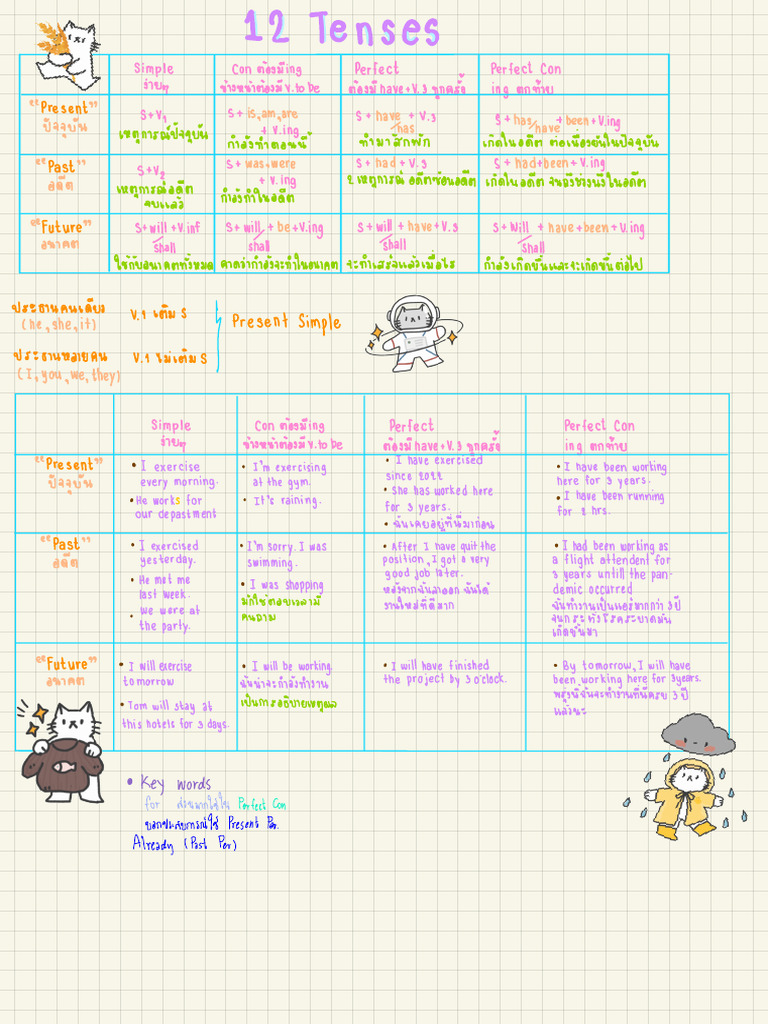 12 Tenses
Simple
ง่ายๆ
Con ต้องมีing
ข้างหน้าต้องมี v.to be
Perfect
ต้องมี have+V.3 ทุกครั้ง
Perfect Con
ing ตกท้าย
"Present"
ปัจจุบัน
S+V1
เหตุการณ์ปัจจุบัน
S+ is,am,are
+ V.ing
กำลังทำตอนนี้
S + have + V.3
has
ทำมาสักพัก
S + has + been + V.ing
have
เกิดในอดีต ต่อเนื่องยันในปัจจุบัน
"Past"
อดีต
S+V2
เหตุการณ์อดีต
จบแล้ว
S + was,were
+ V.ing
กำลังทำในอดีต
S + had + V.3
2 เหตุการณ์ อดีตซ้อนอดีต
S + had+been + V.ing
เกิดในอดีต จนถึงช่วงนึงในอดีต
"Future"
อนาคต
S+ will +V.inf
shall
ใช้กับอนาคตทั้งหมด
S + will + be+V.ing
shall
คาดว่ากำลังจะทำในอนาคต
S + will + have+V.3
shall
จะทำเสร็จแล้วเมื่อไร
S + Will + have+been+V.ing
shall
กำลังเกิดขึ้นและจะเกิดขึ้นต่อไป
ประธานคนเดียว V.1 เติม S
(he, she, it)
Present Simple
ประธานหลายคน V.1 ไม่เติม S
(I, you, we, they)
Simple
ง่ายๆ
Con ต้องมีing
ข้างหน้าต้องมี v.to be
Perfect
ต้องมี have+V.3 ทุกครั้ง
Perfect Con
ing ตกท้าย
"Present"
ปัจจุบัน
• I exercise
every morning.
• He works for
our depastment
• I'm exercising
at the gym.
• It's raining.
• I have exercised
since 2022
• She has worked here
for 3 years.
• ฉันเคยอยู่ที่นี่มาก่อน
• I have been working
here for 3 years.
• I have been running
for 2 hrs.
"Past"
อดีต
• I exercised
yesterday.
• He met me
last week.
• We were at
the party.
• I'm sorry. I was
swimming.
• I was shopping
มักใช้ตอบเวลามี
คนถาม
• After I have quit the
position, I got a very
good job later.
หลังจากฉันลาออก ฉันได้
งานใหม่ที่ดีมาก
• I had been working as
a flight attendent for
3 years untill the pan-
demic occurred
ฉันทำงานเป็นแอร์มากกว่า 3 ปี
จนกระทั่งโรคระบาดมัน
เกิดขึ้นมา
"Future"
อนาคต
• I will exercise
tomorrow
• Tom will stay at
this hotels for 3 days.
• I will be working.
ฉันน่าจะกำลังทำงาน
เป็นการอธิบายเหตุผล
• I will have finished
the project by 3 o'clock.
• By tomorrow, I will have
been working here for 3years.
พรุ่งนี้ฉันจะทำงานที่นี่ครบ 3 ปี
แล้วนะ
• Key words
for ส่วนมากใช้ใน Perfect Con
Present Per.
Already (Past Per)